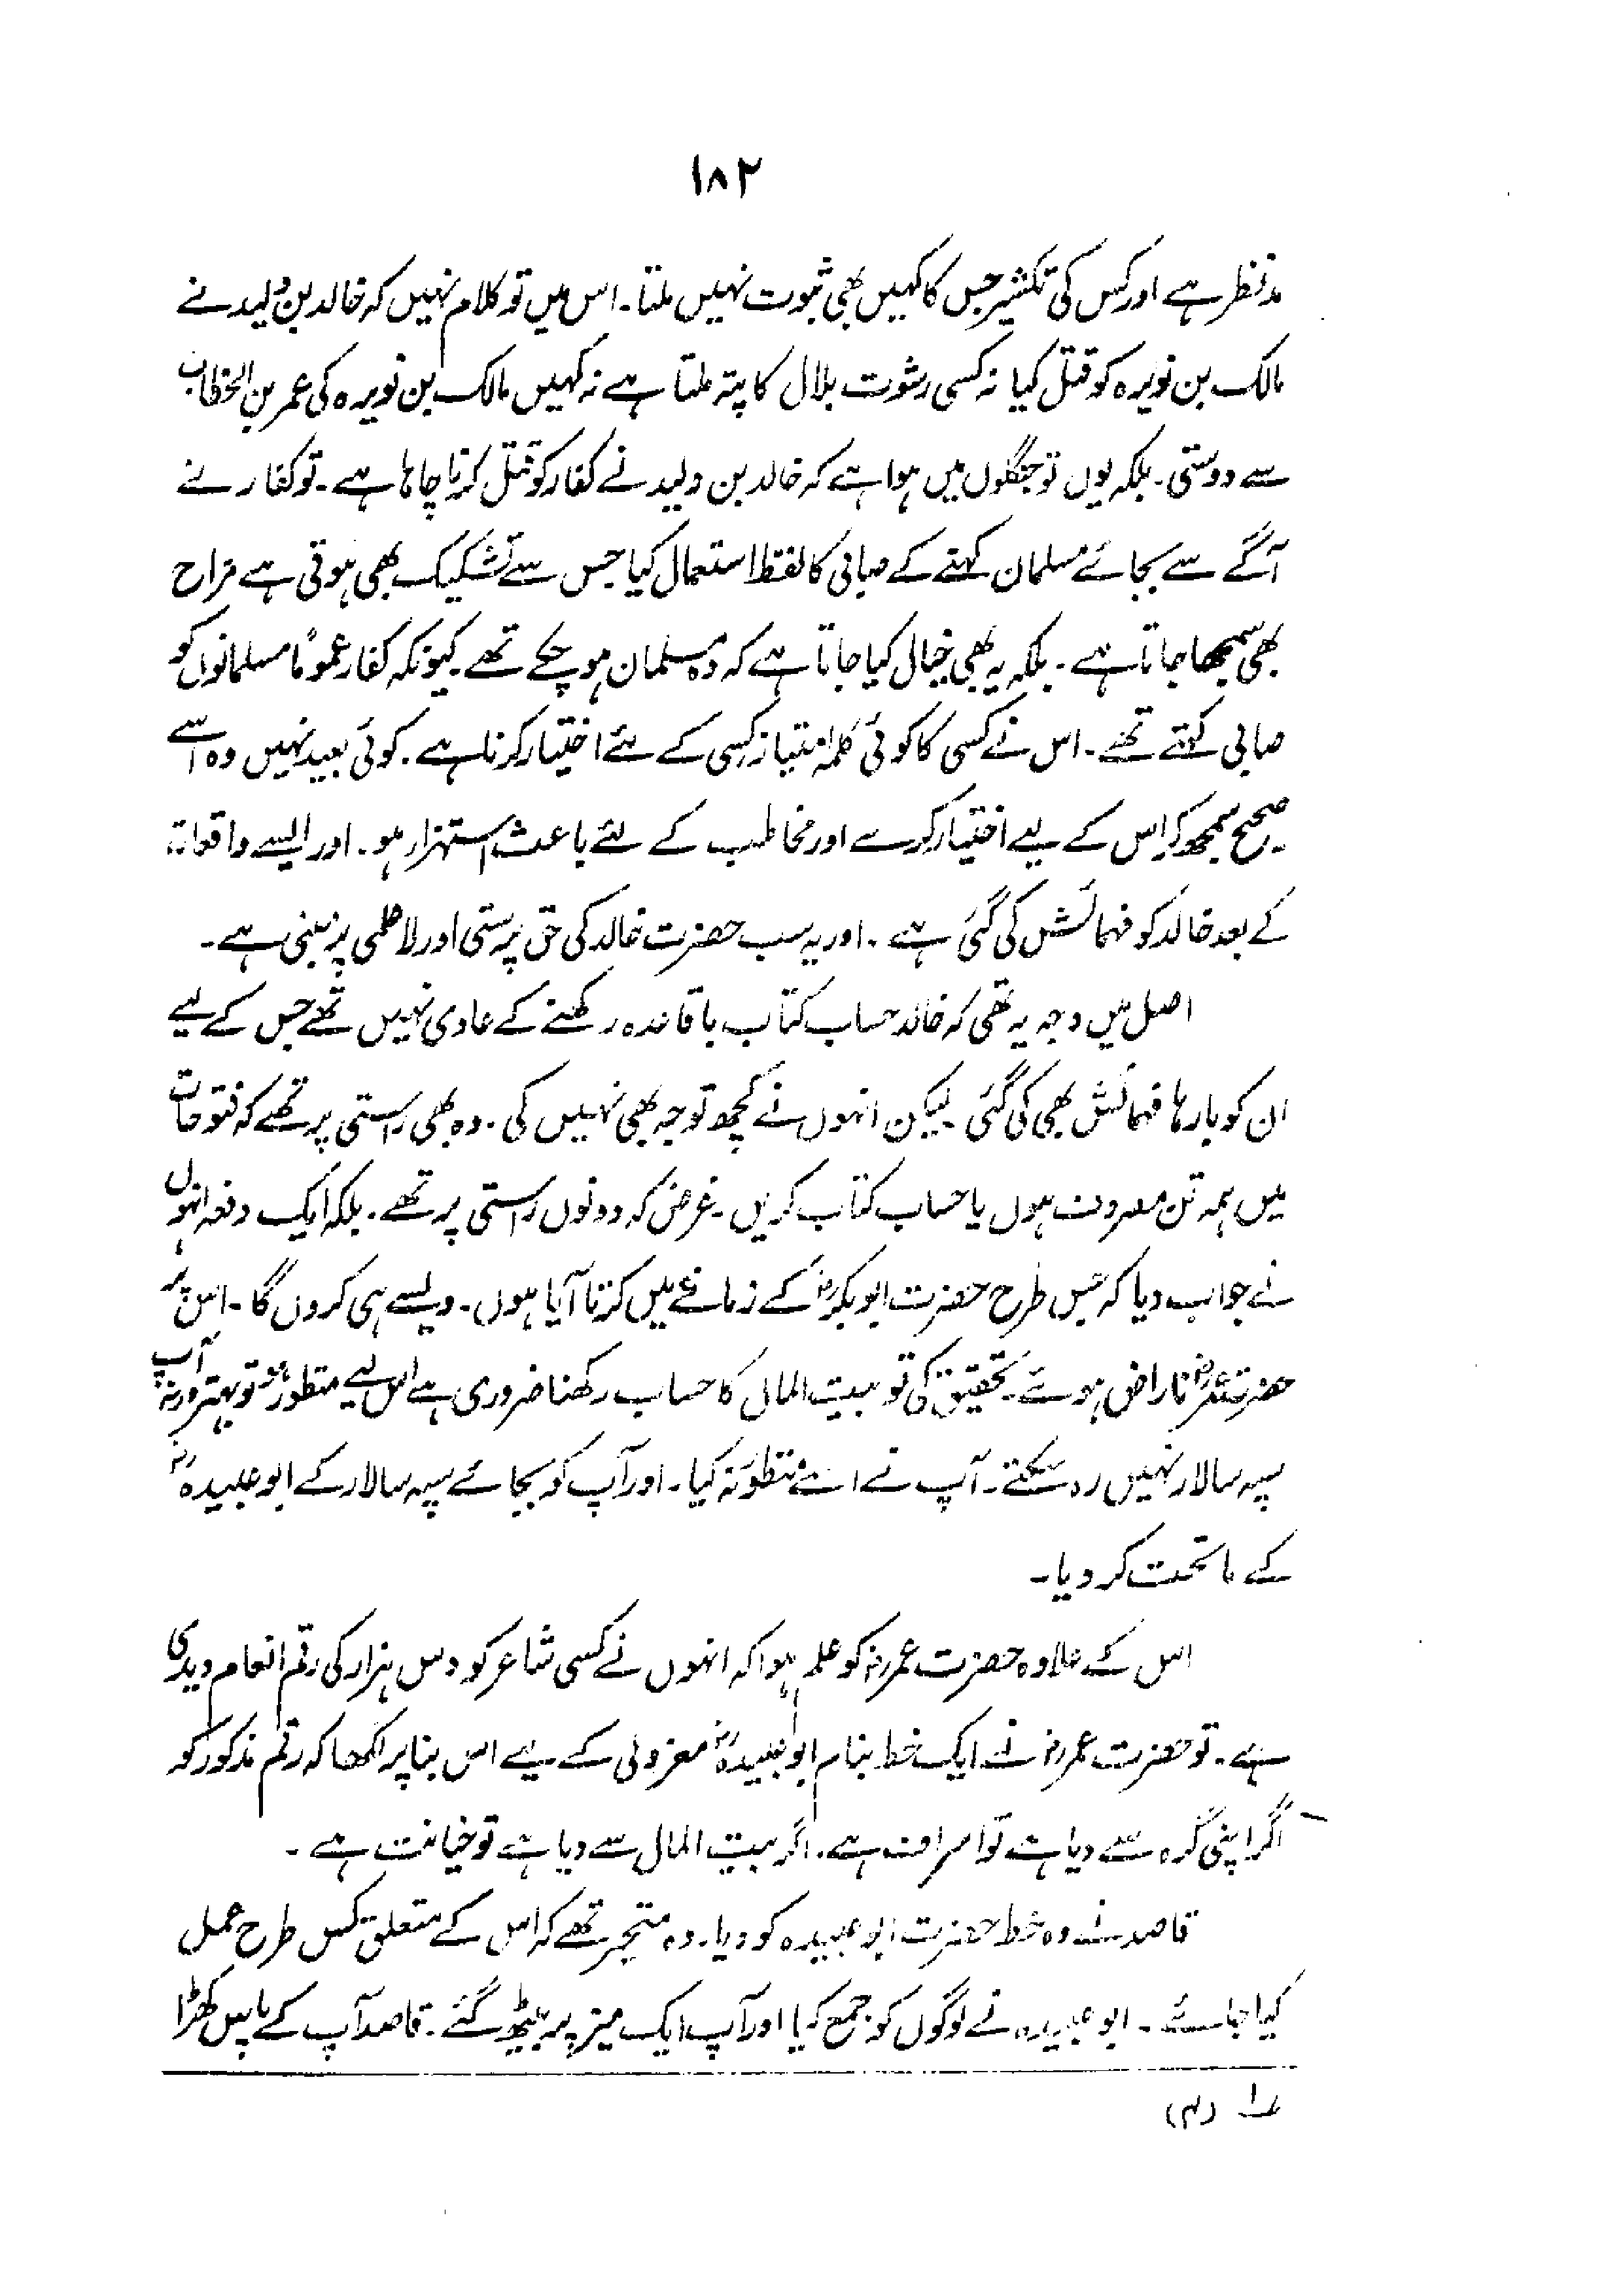 ۱۸۲
مدنظر ہے اور کس کی تکشیر جس کا کہیں بھی ثبوت نہیں ملتا۔ اس میں تو کلام نہیں کہ خالد بن ولید نے
مالک بن نویرہ کو قتل کیا نہ کسی رشوت بلال کا پتہ ملتا ہے نہ کہیں مالک بن نویرہ کی عمر بن الخطاب
سے دوستی۔ بلکہ یوں تو جنگلوں میں ہوا ہے کہ خالد بن ولید نے کفار کو قتل کرنا چاہا ہے۔ تو کفار نے
آگے سے بجائے مسلمان کہنے کے صابی کا لفظ استعمال کیا جس سے تشکیک بھی ہوتی ہے مزاح
بھی سمجھا جاتا ہے۔ بلکہ یہ بھی خیال کیا جاتا ہے کہ وہ مسلمان ہو چکے تھے۔ کیونکہ کفار عموماً مسلمانوں کو
صابی کہتے تھے۔ اس نے کسی کا کوئی کلمہ امتیاز کسی کے لئے اختیار کرنا ہے۔ کوئی بعید نہیں وہ اسے
صحیح سمجھ کر اس کے لیے اختیار کرے اور مخاطب کے لئے باعث استہزار ہو۔ اور ایسے واقعات
کے بعد خالد کو فہمائش کی گئی ہے۔ اور یہ سب حضرت خالد کی حق پرستی اور لاعلمی پر مبنی ہے۔
اصل میں وجہ یہ تھی کہ خالد حساب کتاب باقاعدہ رکھنے کے عادی نہیں تھے جس کے لیے
ان کو بارہا فہمائش بھی کی گئی لیکن انہوں نے کچھ توجہ بھی نہیں کی۔ وہ بھی راستی پر تھے کہ فتوحات
میں ہمہ تن مصروف ہوں یا حساب کتاب کریں۔ غرض کہ دونوں راستی پر تھے۔ بلکہ ایک دفعہ انہوں
نے جواب دیا کہ جس طرح حضرت ابوبکرؓ کے زمانے میں کرتا آیا ہوں۔ ویسے ہی کروں گا۔ اس پر
حضرت عمرؓ ناراض ہوئے۔ تحقیق کی تو بیت المال کا حساب رکھنا ضروری ہے اس لیے منظور ہو تو بہتر ورنہ آپ
سپہ سالار نہیں رہ سکتے۔ آپ نے اسے منظور نہ کیا۔ اور آپ کو بجائے سپہ سالار کے ابوعبیدہؓ
کے ماتحت کر دیا۔
اس کے علاوہ حضرت عمرؓ کو علم ہوا کہ انہوں نے کسی شاعر کو دس ہزار کی رقم انعام دیدی
ہے۔ تو حضرت عمرؓ نے ایک خط بنام ابوعبیدہؓ معزولی کے لیے اس بنا پر لکھا کہ رقم مذکور کو
اگر اپنی گرہ سے دیا ہے تو اسراف ہے۔ اگر بیت المال سے دیا ہے تو خیانت ہے۔
قاصد نے وہ خط حضرت ابوعبیدہ کو دیا۔ وہ متحیر تھے کہ اس کے متعلق کس طرح عمل
کیا جائے۔ ابوعبیدہ نے لوگوں کو جمع کیا اور آپ ایک میز پر بیٹھ گئے۔ قاصد آپ کے پاس کھڑا